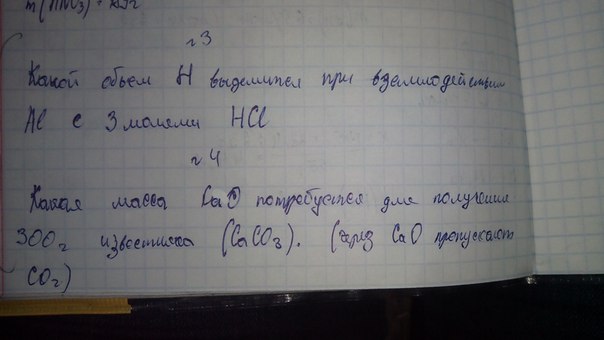 m(HNO3) =
№3
Какой объем H выделится при взаимодействии
Al с 3 молями HCl
№4
Какая масса CaO потребуется для получения
300г известняка (CaCO3). (через CaO пропускают
CO2)